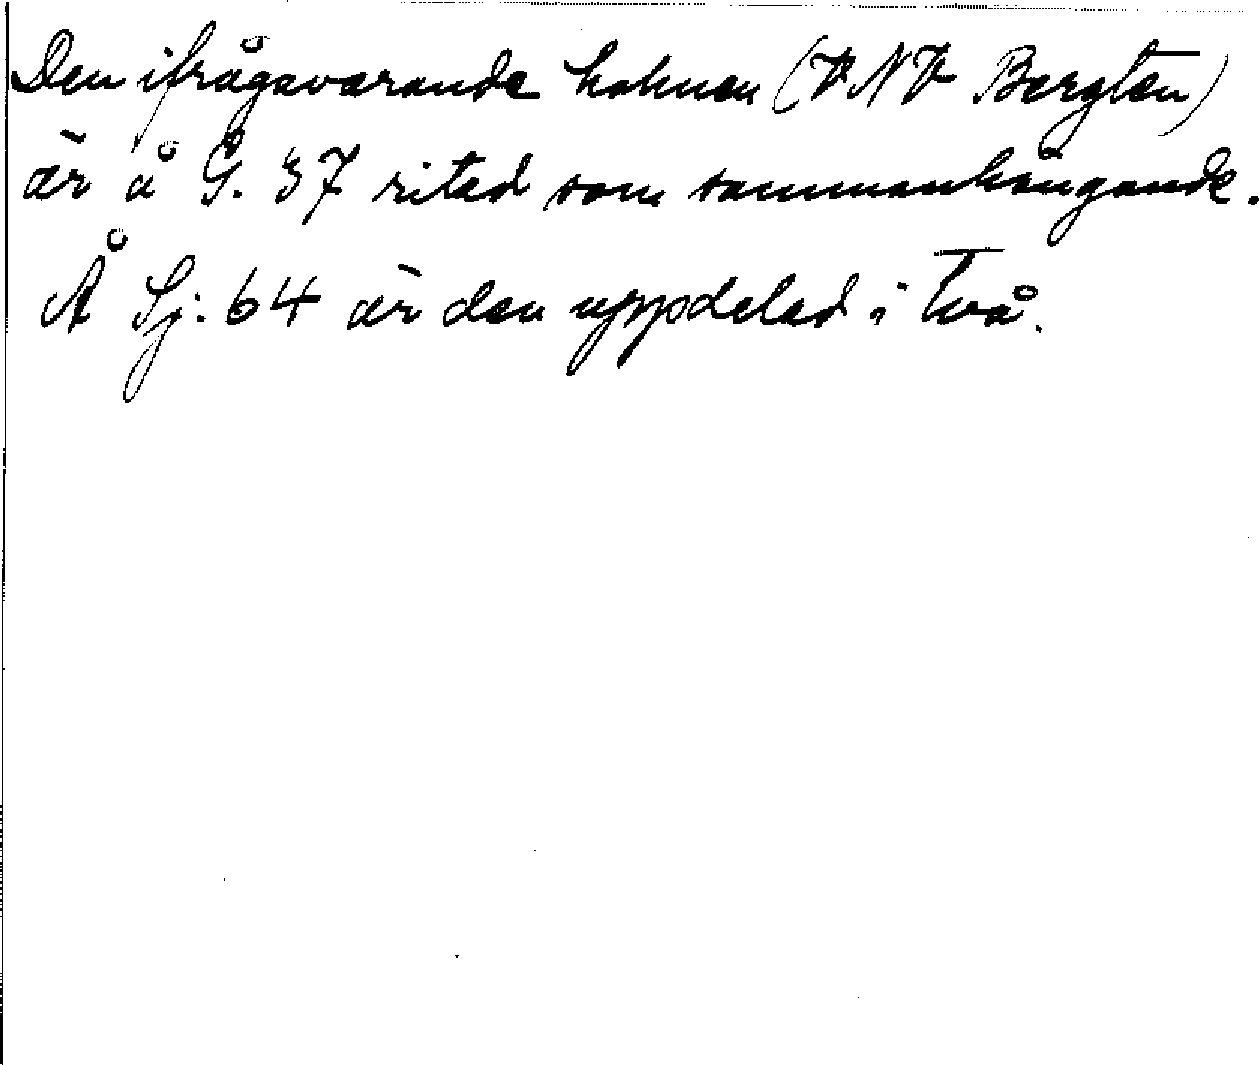 Den ifrågavarande holmen (V NV Bergten)
är å G. 37 ritad som sammanhängande.
Å Sj. 64 är den uppdelad i två.